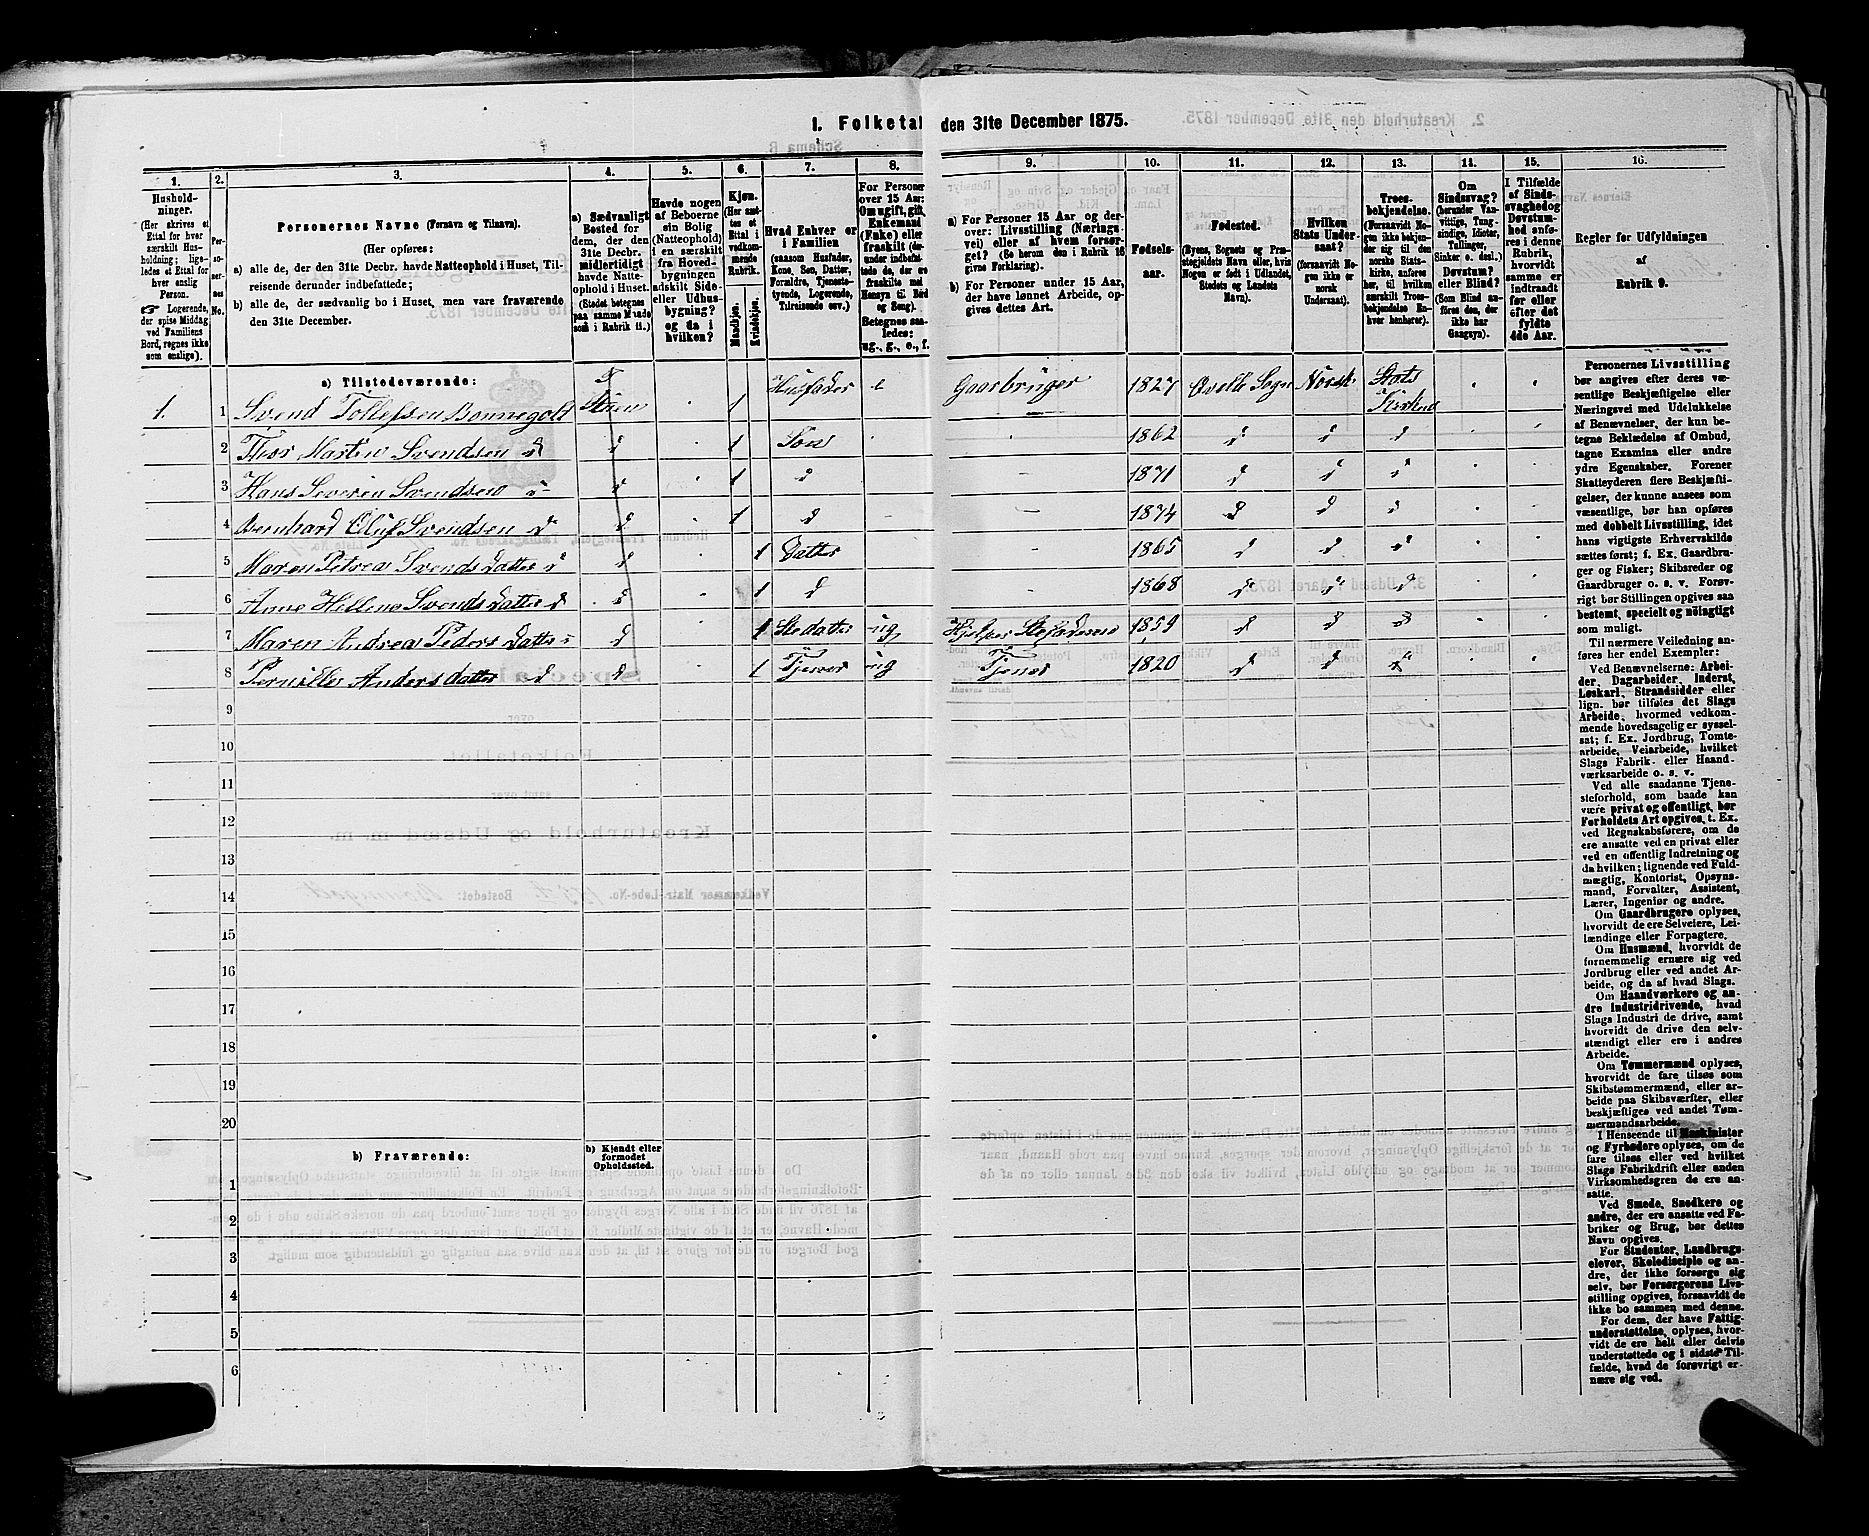 1. Folketal den 31te December 1875.
1.
2.
3.
4.
5.
6.
7.
8.
9.
10.
11.
12.
13.
14.
15.
16.
Hushold-
ninger.
(Her skrives et
Ettal for hver
særskilt Hus-
holdning; lige-
ledes et Ettal for
hver enslig
Person.
☞ Logerende,
der spise Middag
ved Familiens
Bord, regnes ikke
som enslige).
Per-
soner-
nes
No.
Personernes Navne (Fornavn og Tilnavn).
(Her opføres:
a) alle de, der den 31te Decbr. havde Natteophold i Huset, Til-
reisende derunder indbefattede;
b) alle de, der sædvanlig bo i Huset, men vare fraværende
den 31te December.
a) Sædvanligt
Bosted for
dem, der den
31te Decbr.
midlertidigt
havde Natte-
ophold i Huset.
(Stedet betegnes
paa samme Maade
som i Rubrik 11.)
Havde nogen
af Beboerne
sin Bolig
(Natteophold)
i en særskilt
fra Hoved-
bygningen
adskilt Side-
eller Udhus-
bygning?
og da i
hvilken?
Kjøn.
(Her sæt-
tes et
Ettal i
vedkom-
mende
Rubrik.
Mandkjøn.
Kvindekjøn.
Hvad Enhver er
i Familien
(saasom Husfader,
Kone, Søn, Datter,
Forældre, Tjeneste-
tyende, Logerende,
Tilreisende osv.)
For Personer
over 15 Aar:
Om ugift, gift,
Enkemand
(Enke) eller
fraskilt (der-
under indbefat-
tede de, der ere
fraskilte med
Hensyn til Bord
og Seng).
Betegnes saa-
ledes:
ug., g., e., f.
a) For Personer 15 Aar og der-
over: Livsstilling (Nærings-
vei) eller af hvem forsør-
get? (Se herom den i Rubrik 16
givne Forklaring).
b) For Personer under 15 Aar,
der have lønnet Arbeide, op-
gives dettes Art.
Fødsels-
aar.
Fødested.
(Byens, Sognets og Præ-
stegjeldets Navn eller, hvis
Nogen er født i Udlandet,
Stedets og Landets
Navn).
Hvilken
Stats Under-
saat?
(forsaavidt No-
gen ikke er
norsk
Undersaat).
Troes-
bekjendelse.
(Forsaavidt No-
gen ikke bekjen-
der sig til den
norske Stats-
kirke, anføres
her, til hvilken
særskilt Troes-
bekjendelse En-
hver henhører).
Om
Sindssvag?
(herunder Van-
vittige, Tung-
sindige, Idioter,
Tullinger,
Sinker o. desl.)
Døvstum?
eller Blind?
(Som Blind an-
føres den, der
ikke har
Gangsyn).
I Tilfælde
af Sinds-
svaghed og
Døvstum-
hed anfø-
res i denne
Rubrik,
hvorvidt
samme er
indtraadt
før eller
efter det
fyldte
4de Aar.
Regler for Udfyldningen
af
Rubrik 9.
a) Tilstedeværende:
1. 1 Svend Tollefsen Bonnegolt 1 Husfader e Gaarbruger 1827 Qvelle Sogn Norsk Stats Kirken
2 Thor Martin Svendsen d d 1 Søn 1862 d d d
3 Hans Severin Svendsen d d 1 d 1871 d d d
4 Bernhard Oluf Svendsen d d 1 d 1874 d d d
5 Maren Petrea Svends Datter d d 1 Datter 1865 d d d
6 Anne Hellene Svends Datter d d 1 d 1868 d d d
7 Maren Andrea Peders Datter d d 1 Stedatter ug Hjelper Stefaderen 1859 d d d
8 Pernille Anders datter d d 1 Tjener ug Tjener 1820 d d d
9
10
11
12
13
14
15
16
17
18
19
20
b) Fraværende:
b) Kjendt eller
formodet
Opholdssted.
1
2
3
4
5
6
Personernes Livsstilling
bør angives efter deres væ-
sentlige Beskjæftigelse eller
Næringsvei med Udelukkelse
af Benævnelser, der kun be-
tegne Beklædelse af Ombud,
tagne Examina eller andre
ydre Egenskaber. Forener
Skatteyderen flere Beskjæfti-
gelser, der kunne ansees som
væsentlige, bør han opføres
med dobbelt Livsstilling, idet
hans vigtigste Erhvervskilde
sættes først; f. Ex. Gaardbru-
ger og Fisker; Skibsreder og
Gaardbruger o. s. v. Forøv-
rigt bør Stillingen opgives saa
bestemt, specielt og nöiagtigt
som muligt.
Til nærmere Veiledning an-
føres her endel Exempler:
Ved Benævnelserne: Arbei-
der, Dagarbeider, Inderst,
Løskarl, Strandsidder eller
lign. bør tilføies det Slags
Arbeide, hvormed vedkom-
mende hovedsagelig er syssel-
sat; f. Ex. Jordbrug, Tomte-
arbeide, Veiarbeide, hvilket
Slags Fabrik- eller Haand-
værksarbeide o. s. v.
Ved alle saadanne Tjene-
steforhold, som baade kan
være privat og offentligt, bør
Forholdets Art opgives, t. Ex.
ved Regnskabsførere, om de
ere ansatte ved en privat eller
ved en offentlig Indretning og
da hvilken; lignende ved Fuld-
mægtig, Kontorist, Opsyns-
mand, Forvalter, Assistent,
Lærer, Ingeniør og andre.
Om Gaardbrugere oplyses,
hvorvidt de ere Selveiere, Lei-
lændinge eller Forpagtere.
Om Husmænd, hvorvidt de
fornemmelig ernære sig ved
Jordbrug eller ved andet Ar-
beide, og da af hvad Slags.
Om Haandværkere og an-
dre Industridrivende, hvad
Slags Industri de drive, samt
hvorvidt de drive den selv-
stændigt eller ere i andres
Arbeide.
Om Tømmermænd oplyses,
hvorvidt de fare tilsøs som
Skibstømmermænd, eller ar-
beide paa Skibsværfter, eller
beskjæftiges ved andet Tøm-
mermandsarbeide.
I Henseende til Maskinister
og Fyrbødere oplyses, om de
fare tilsøs eller ved hvilket
Slags Fabrikdrift eller anden
Virksomhedsgren de ere an-
satte.
Ved Smede, Snedkere og
andre, der ere ansatte ved Fa-
briker og Brug, bør dettes
Navn opgives.
For Studenter, Landbrugs-
elever, Skoledisciple og an-
dre, der ikke forsørge sig
selv, bør Forsørgerens Livs-
stilling opgives, forsaavidt de
ikke bo sammen med denne.
For dem, der have Fattig-
understøttelse, oplyses, hvor-
vidt de ere helt eller delvis
understøttede og i sidste Til-
fælde, hvad de forøvrigt er-
nære sig ved.